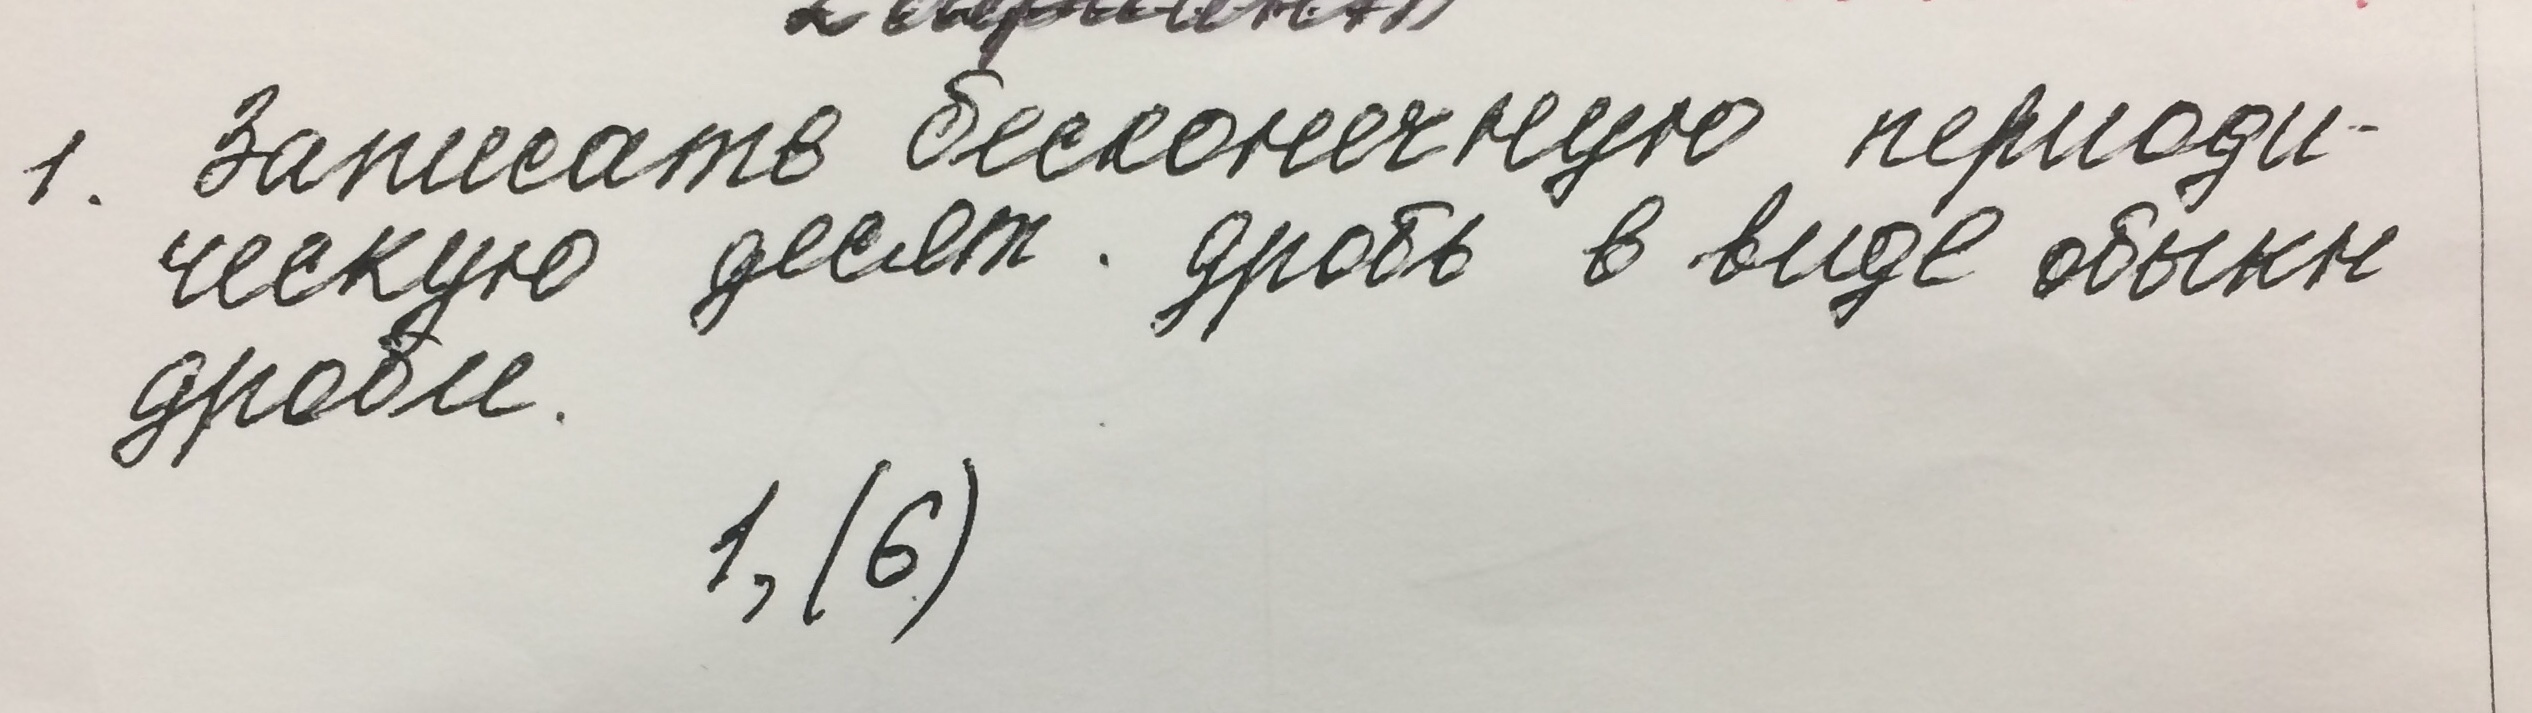 1. Записать бесконечную периоди-
ческую десят. дробь в виде обыкн
дроби.
1,(6)